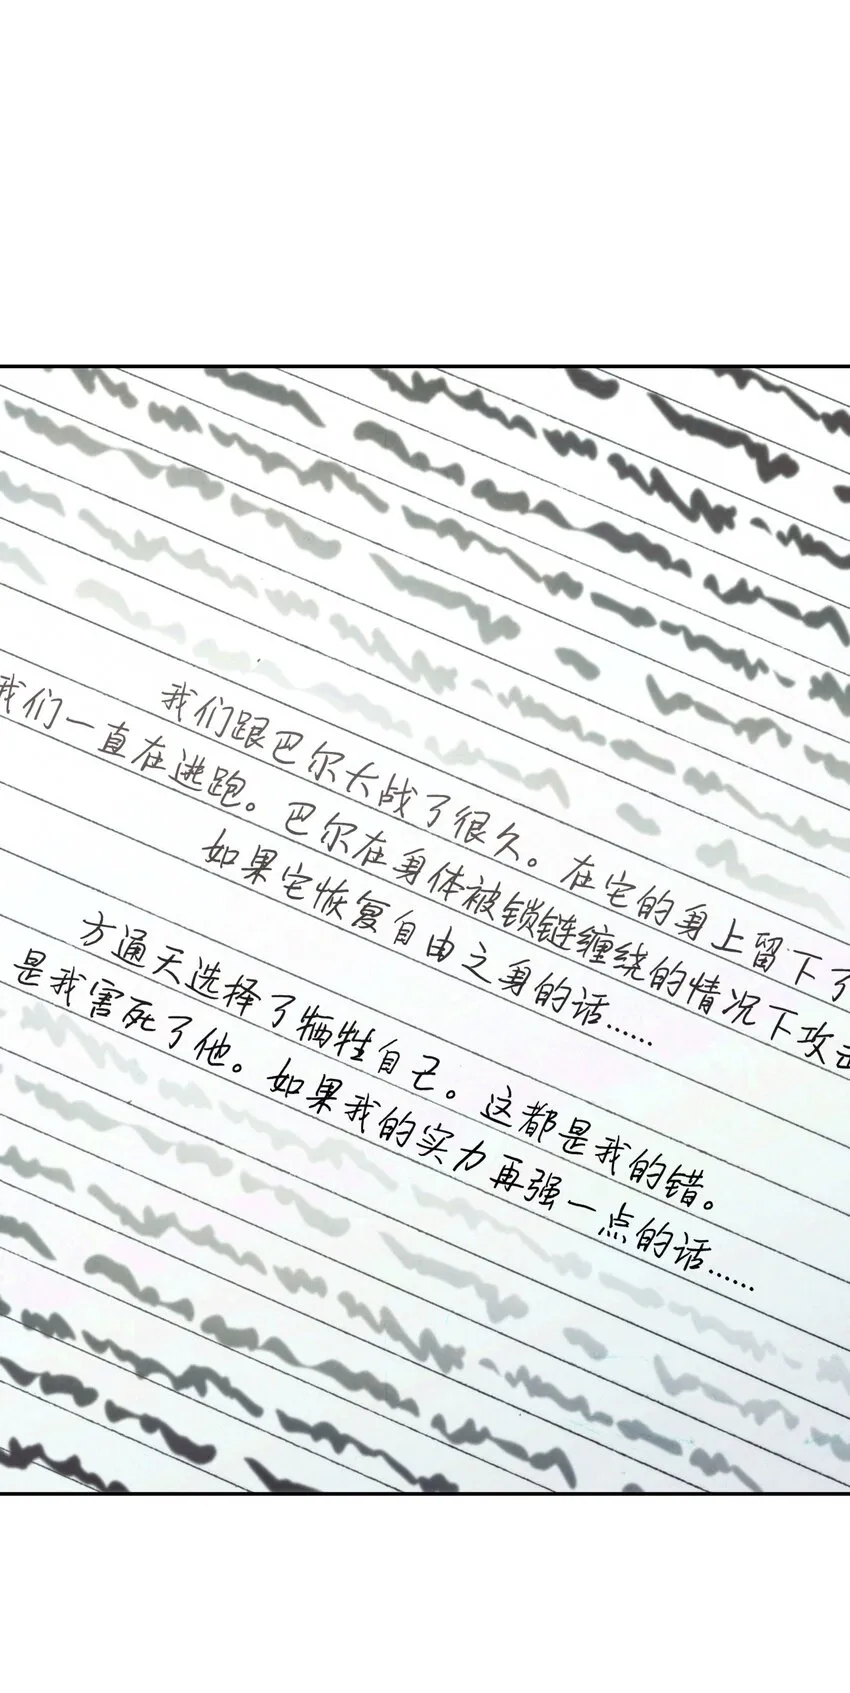 我们跟巴尔大战了很久。在它的身上留下了
我们一直在逃跑。巴尔在身体被锁链缠绕的情况下攻击
如果它恢复自由之身的话……
方通天选择了牺牲自己。这都是我的错。
是我害死了他。如果我的实力再强一点的话……